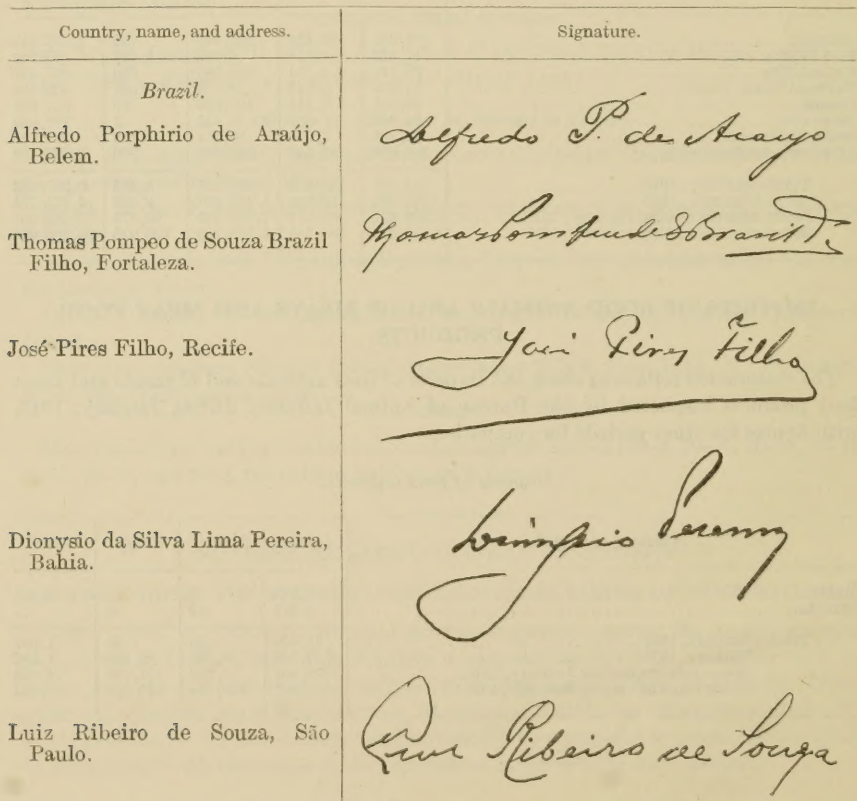 Country, name, and address.
Signature.
Brazil.
Alfredo Porphirio de Araújo,
Belem.
Alfredo P. de Araujo
Thomas Pompeo de Souza Brazil
Filho, Fortaleza.
José Pires Filho, Recife.
José Pires Filho
Dionysio da Silva Lima Pereira,
Bahia.
Dionysio Pereira
Luiz Ribeiro de Souza, São
Paulo.
Luiz Ribeiro de Souza